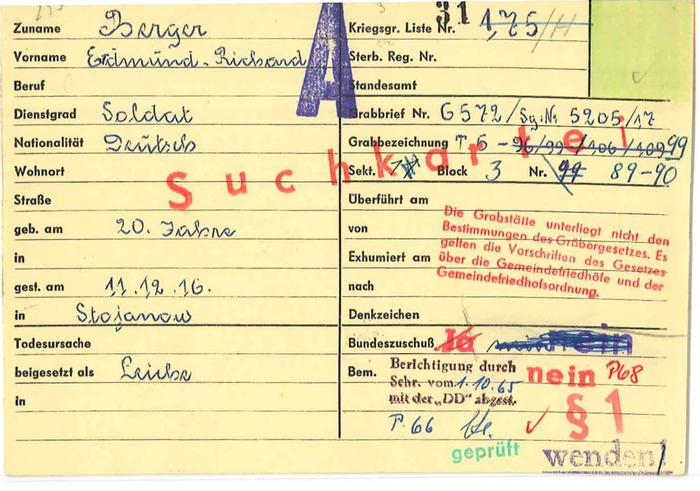 Zuname Berger
Vorname Erdmund-Richard
Beruf
Dienstgrad Soldat
Nationalität Deutsch
Wohnort
Straße
geb. am 20. Jahre
in
gest. am 11.12.16.
in Stojanow
Todesursache
beigesetzt als Leiche
in
A
31
Kriegsgr. Liste Nr. 1,75/H
Sterb. Reg. Nr.
Standesamt
Grabbrief Nr. G572/Sg.Nr. 5205/17
Grabbezeichnung T 6 - 96/99/106/109 99
Sekt. Block 3 Nr. 99 89-90
Suchkartei
Überführt am
von
Exhumiert am
nach
Die Grabstätte unterliegt nicht den
Bestimmungen des Gräbergesetzes. Es
gelten die Vorschriften des Gesetzes
über die Gemeindefriedhöfe und der
Gemeindefriedhofsordnung.
Denkzeichen
Bundeszuschuß Ja nein
Bem. Berichtigung durch
Schr. vom 1.10.65
mit der „DD" abgest.
nein P68
P.66
§ 1
geprüft
wenden!